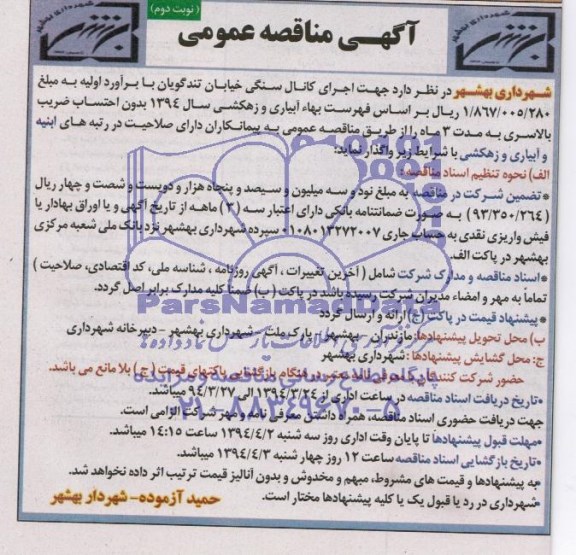 (نوبت دوم)
آگهی مناقصه عمومی
شهرداری بهشهر در نظر دارد جهت اجرای کانال سنگی خیابان تندگویان با برآورد اولیه به مبلغ
۱/۸۶۷/۰۰۵/۲۸۰ ریال بر اساس فهرست بهاء آبیاری و زهکشی سال ۱۳۹۴ بدون احتساب ضریب
بالاسری به مدت ۳ ماه را از طریق مناقصه عمومی به پیمانکاران دارای صلاحیت در رتبه های ابنیه
و آبیاری و زهکشی با شرایط زیر واگذار نماید:
الف) نحوه تنظیم اسناد مناقصه:
* تضمین شرکت در مناقصه به مبلغ نود و سه میلیون و سیصد و پنجاه هزار و دویست و شصت و چهار ریال
(۹۳/۳۵۰/۲۶۴) به صورت ضمانتنامه بانکی دارای اعتبار سه (۳) ماهه از تاریخ آگهی و یا اوراق بهادار یا
فیش واریزی نقدی به حساب جاری ۰۱۰۸۰۱۳۲۷۲۰۰۷ سپرده شهرداری بهشهر نزد بانک ملی شعبه مرکزی
بهشهر در پاکت الف.
* اسناد مناقصه و مدارک شرکت شامل (آخرین تغییرات، آگهی روزنامه، شناسه ملی، کد اقتصادی، صلاحیت)
تماماً به مهر و امضاء مدیران شرکت رسیده باشد در پاکت (ب) ضمناً کلیه مدارک برابر اصل گردد.
* پیشنهاد قیمت در پاکت (ج) ارائه و ارسال گردد
ب) محل تحویل پیشنهادها: مازندران - بهشهر - پارک ملت - شهرداری بهشهر - دبیرخانه شهرداری
ج: محل گشایش پیشنهادها: شهرداری بهشهر
حضور شرکت کنندگان با معرفی نامه معتبر در هنگام بازگشایی پاکتهای قیمت (ج) بلا مانع می باشد.
*تاریخ دریافت اسناد مناقصه در ساعت اداری از ۱۳۹۴/۳/۲۴ الی ۹۴/۳/۲۷ میباشد.
جهت دریافت حضوری اسناد مناقصه، همراه داشتن معرفی نامه و مهر شرکت الزامی است.
*مهلت قبول پیشنهادها تا پایان وقت اداری روز سه شنبه ۱۳۹۴/۴/۲ ساعت ۱۴:۱۵ میباشد.
*تاریخ بازگشایی اسناد مناقصه ساعت ۱۲ روز چهار شنبه ۱۳۹۴/۴/۳ میباشد.
*به پیشنهادها و قیمت های مشروط، مبهم و مخدوش و بدون آنالیز قیمت ترتیب اثر داده نخواهد شد.
*شهرداری در رد یا قبول یک یا کلیه پیشنهادها مختار است.
حمید آزموده- شهردار بهشهر
ParsNamadData
پایگاه اطلاع رسانی مناقصه و مزایده
۰۲۱-۸۸۳۴۹۶۷۰-۵